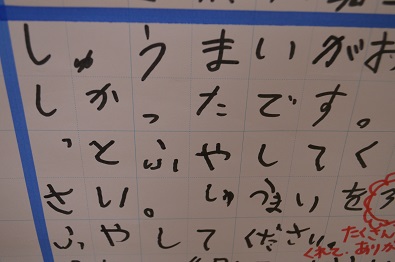 しゅうまいがお
しかったです。
っとふやしてく
さい。しゅうまいを
ふやしてください。
たくさん
くれて、ありが